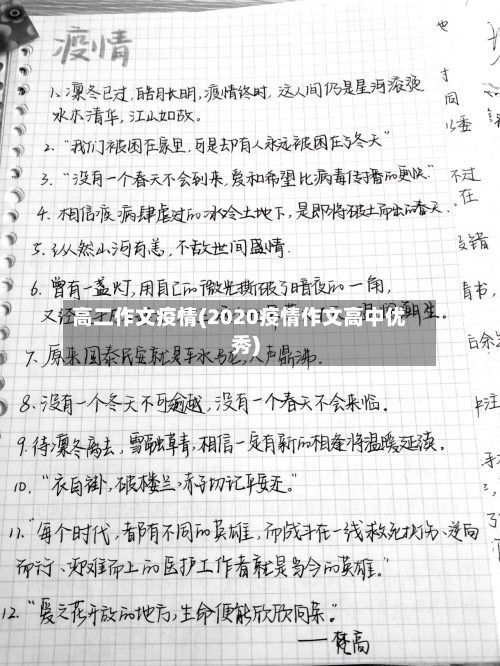 疫情
1. 凛冬已过,皓月长明,疫情终时,这人间仍是星河滚烫
水木清华,江山如故。
2. “我们被困在家里,可是却有人永远被困在了冬天”
3. “没有一个春天不会到来,爱和希望比病毒传播的更快”
4. 相信疫病肆虐过的冰冷土地下,是即将破土而出的春天.
5. 纵然山河有恙,不敌世间盛情.
6. 曾有一盏灯,用自己的微光撕破了暗夜的一角,
又经
高二作文疫情(2020疫情作文高中优
秀)
7. 原来国泰民安就是车水马龙,人声鼎沸.
8. 没有一个冬天不可逾越,没有一个春天不会来临。
9. 待凛冬离去,雪融草青,相信一定有新的相逢将温暖延续。
10. “衣白褂,破楼兰,赤子切记平安还。”
11. “每个时代,都有不同的英雄,而战斗在一线救死扶伤、逆向
而行、迎难而上的医护工作者就是当今的英雄。”
12. “爱之花开放的地方,生命便能欣欣向荣。”
——梵高
也
寸
同
以委
不过
在
青书,